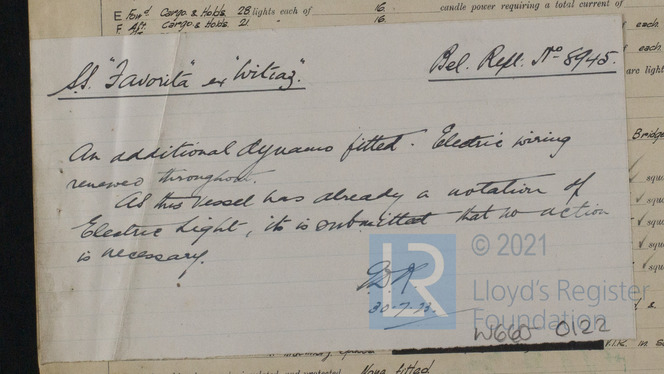 E For'd Cargo & Holds 28 lights each of 16 candle power requiring a total current of
F Aft Cargo & Holds 21 16. each
S.S. "Favorita" ex "Witiaz".
Bel. Rept. No 8945.
each.
arc light
An additional dynamo fitted. Electric wiring
renewed throughout.
Bridge
As this vessel has already a notation of
Electric Light, it is submitted that no action
is necessary.
30-7-23.
LR
© 2021
Lloyd's Register
Foundation
W660-0122
None fitted